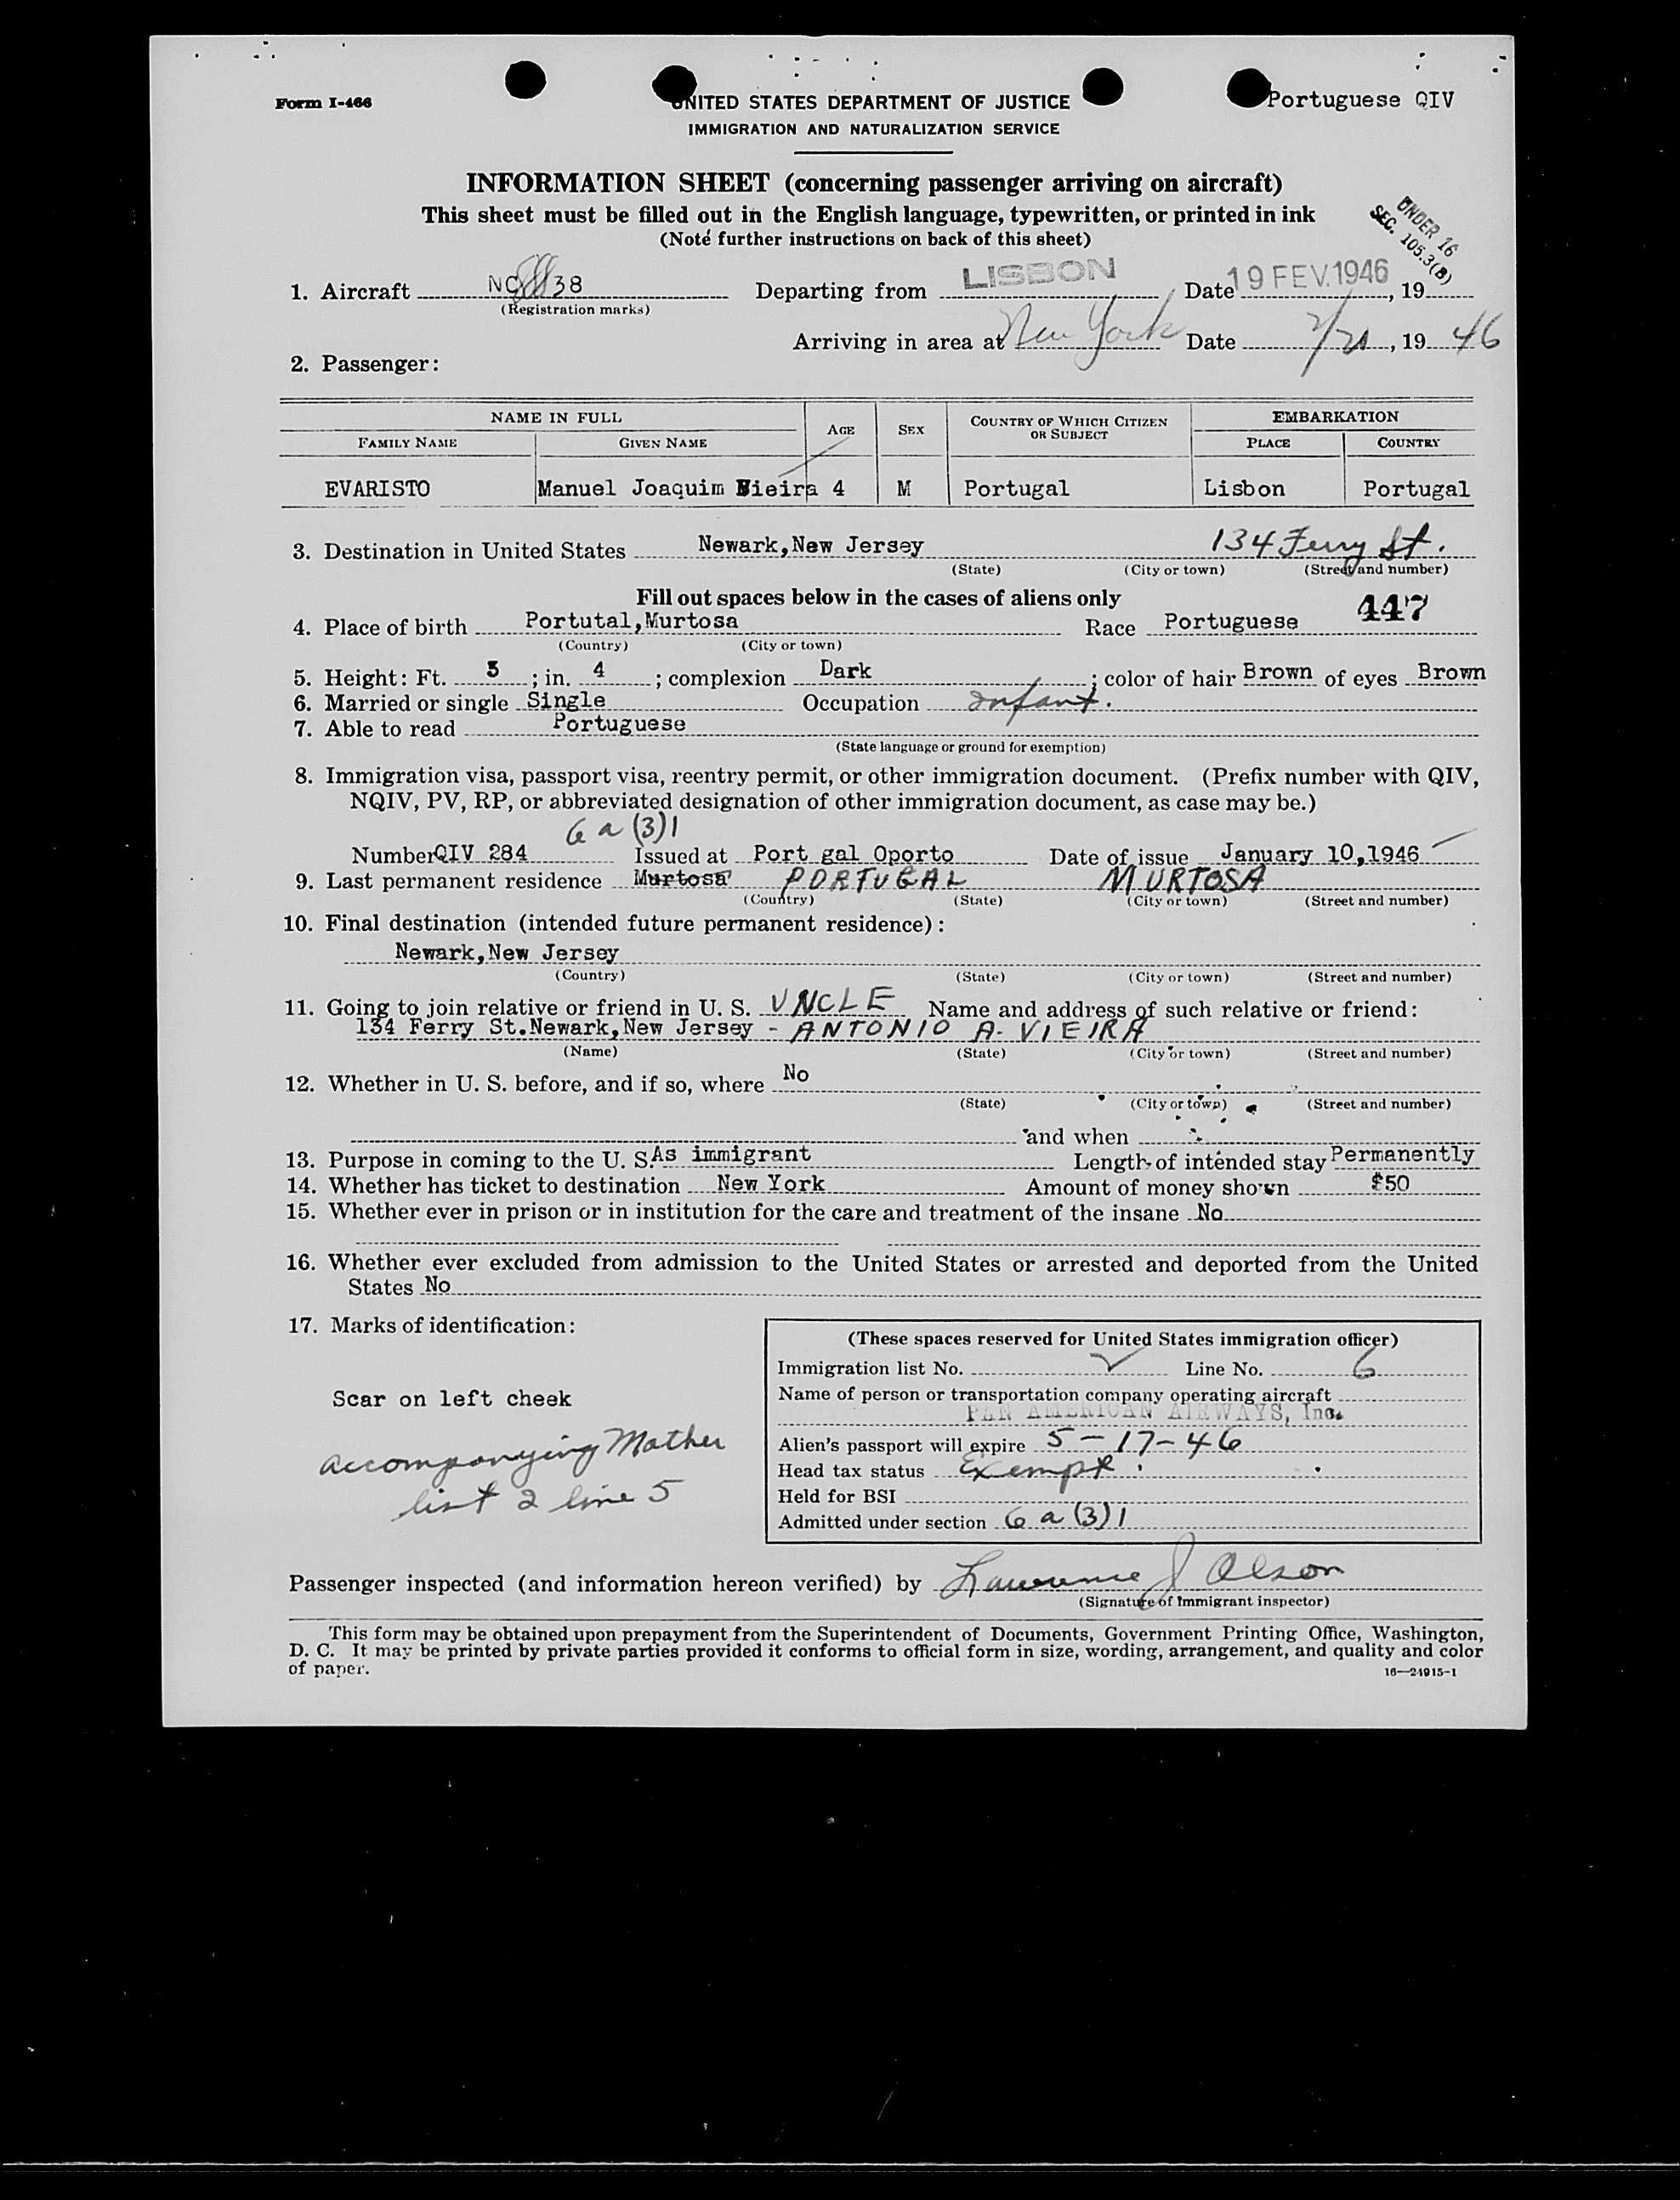 Form I-466
UNITED STATES DEPARTMENT OF JUSTICE
Portuguese QIV
IMMIGRATION AND NATURALIZATION SERVICE
INFORMATION SHEET (concerning passenger arriving on aircraft)
This sheet must be filled out in the English language, typewritten, or printed in ink
(Note further instructions on back of this sheet)
UNDER 16
SEC. 105.3(B)
1. Aircraft 38 Departing from LISBON Date 19 FEV. 1946, 19
(Registration marks)
Arriving in area at New York Date , 19 46
2. Passenger:
NAME IN FULL AGE SEX COUNTRY OF WHICH CITIZEN OR SUBJECT EMBARKATION
FAMILY NAME GIVEN NAME PLACE COUNTRY
EVARISTO Manuel Joaquim Vieira 4 M Portugal Lisbon Portugal
3. Destination in United States Newark, New Jersey 134 Ferry St.
(State) (City or town) (Street and number)
Fill out spaces below in the cases of aliens only
447
4. Place of birth Portutal, Murtosa Race Portuguese
(Country) (City or town)
5. Height: Ft. 3 ; in. 4 ; complexion Dark ; color of hair Brown of eyes Brown
6. Married or single Single Occupation Infant.
7. Able to read Portuguese
(State language or ground for exemption)
8. Immigration visa, passport visa, reentry permit, or other immigration document. (Prefix number with QIV,
NQIV, PV, RP, or abbreviated designation of other immigration document, as case may be.)
6 a (3) 1
Number QIV 284 Issued at Port gal Oporto Date of issue January 10, 1946
9. Last permanent residence Murtosa PORTUGAL MURTOSA
(Country) (State) (City or town) (Street and number)
10. Final destination (intended future permanent residence):
Newark, New Jersey
(Country) (State) (City or town) (Street and number)
11. Going to join relative or friend in U. S. UNCLE Name and address of such relative or friend:
134 Ferry St. Newark, New Jersey - ANTONIO A. VIEIRA
(Name) (State) (City or town) (Street and number)
12. Whether in U. S. before, and if so, where No
(State) (City or town) (Street and number)
and when
13. Purpose in coming to the U. S. As immigrant Length of intended stay Permanently
14. Whether has ticket to destination New York Amount of money shown $50
15. Whether ever in prison or in institution for the care and treatment of the insane No
16. Whether ever excluded from admission to the United States or arrested and deported from the United
States No
17. Marks of identification:
Scar on left cheek
accompanying Mother
list 2 line 5
(These spaces reserved for United States immigration officer)
Immigration list No. Line No. 6
Name of person or transportation company operating aircraft
PAN AMERICAN AIRWAYS, Inc.
Alien's passport will expire 5-17-46
Head tax status Exempt
Held for BSI
Admitted under section 6 a (3) 1
Passenger inspected (and information hereon verified) by Lawrence J Olson
(Signature of Immigrant inspector)
This form may be obtained upon prepayment from the Superintendent of Documents, Government Printing Office, Washington,
D. C. It may be printed by private parties provided it conforms to official form in size, wording, arrangement, and quality and color
of paper.
16—24915-1